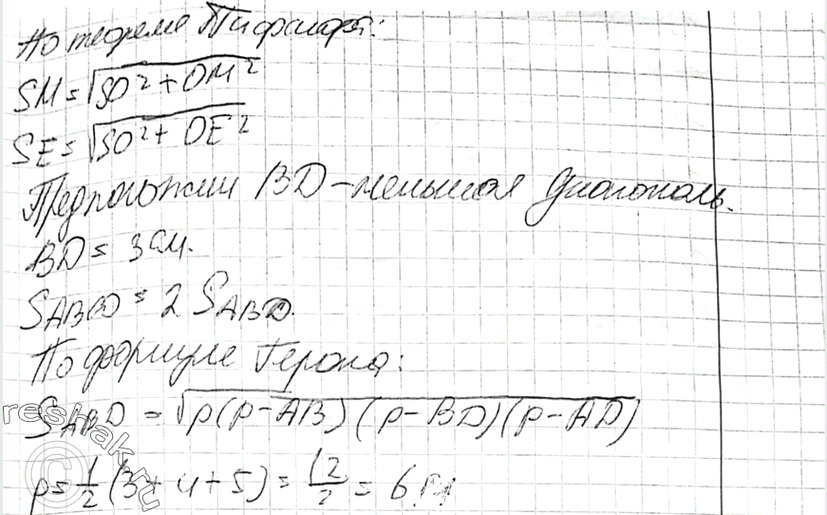 По теореме Пифагора:
SM = √SO² + OM²
SE = √SO² + OE²
Предположим BD - меньшая диагональ.
BD = 3 см.
SABCD = 2 SABD.
По формуле Герона:
SABD = √p(p-AB)(p-BD)(p-AD)
p = 1/2 (3 + 4 + 5) = 12/2 = 6 см
reshak.ru